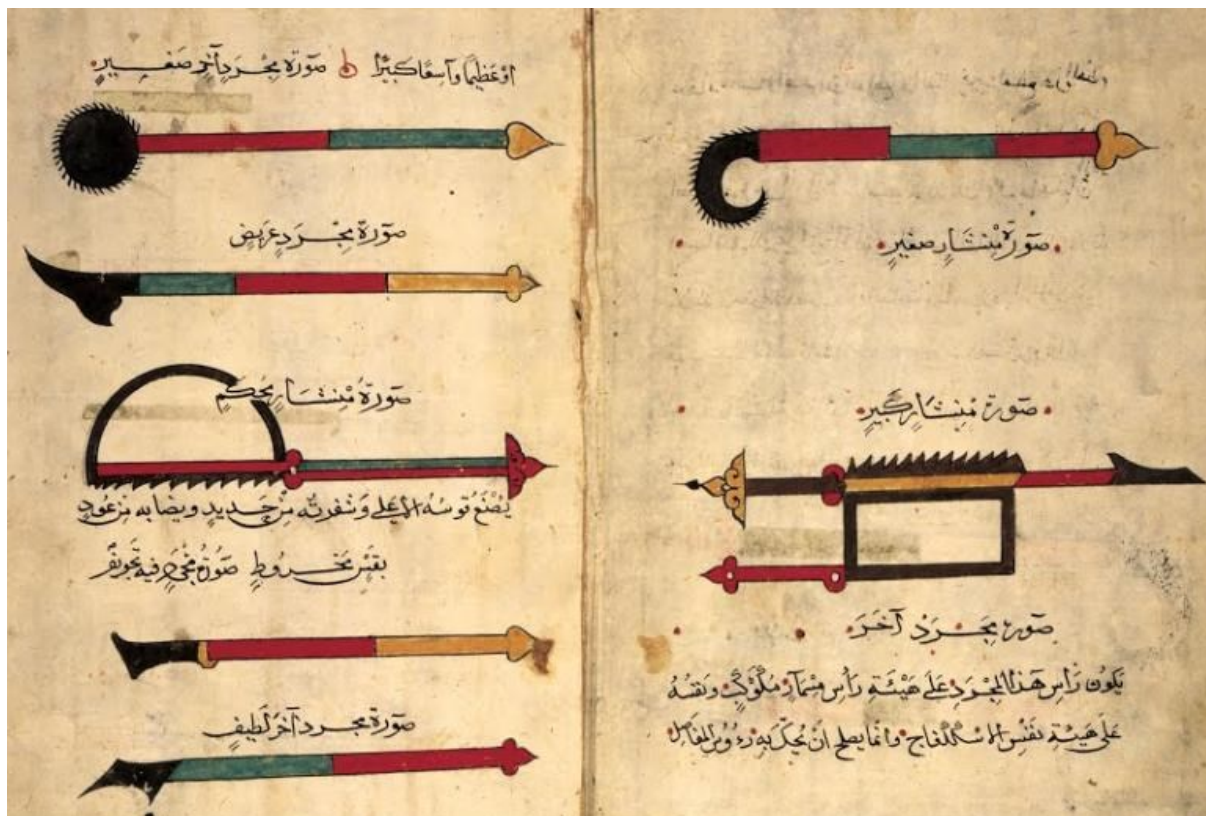 صورة منشار صغير
صورة منشار كبير
صورة مجرد آخر
يكون رأس هذا المجرد على هيئة رأس مسمار مكوكب ونقشه
على هيئة نقش الاسكلفاج وانما يصلح أن يحك به رءوس المفاصل
أو عظيما واسعا كبيرا صورة مجرد آخر صغير
صورة مجرد عريض
صورة منشار محكم
يصنع قوسه الاعلى وشفرته من حديد ونصابه من عود
بقس مخروط صورة مجرد فيه تجويف
صورة مجرد آخر لطيف